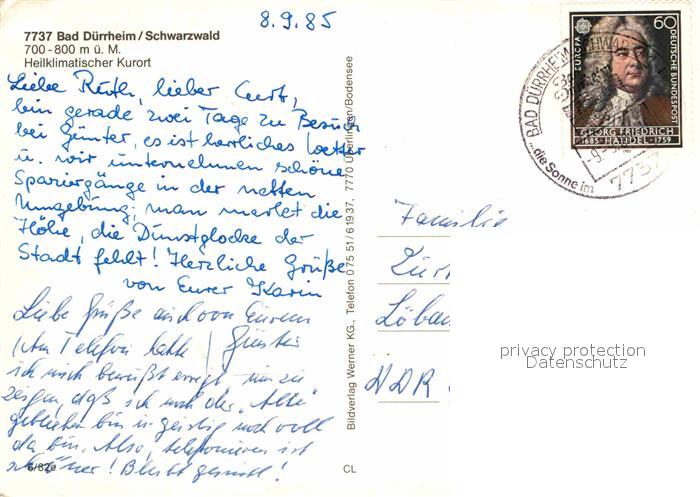 8.9.85
7737 Bad Dürrheim/Schwarzwald
700-800 m ü. M.
Heilklimatischer Kurort
Liebe Ruth, lieber Curt,
bin gerade zwei Tage zu Besuch
bei Günter, es ist herrliches Wetter
u. wir unternehmen schöne
Spaziergänge in der netten
Umgebung; man merket die
Höhe, die Dunstglocke der
Stadt fehlt! Herzliche Grüße
von Eurer Karin
Liebe Grüße auch von Eurem
(Am Telefon hatte Günter
ich mich bewußt erregt um zu
zeigen, daß ich noch der „Alte"
geblieben bin u. geistig noch voll
da bin. Also, telefonieren ist
schöner! Bleibt gesund!
6/82e
CL
Bildverlag Werner KG., Telefon 07551/61937, 7770 Überlingen/Bodensee
EUROPA
60
DEUTSCHE BUNDESPOST
GEORG FRIEDRICH
1685 HÄNDEL 1759
BAD DÜRRHEIM SCHWARZWALD
...die Sonne im
7737
Familie
Löbau
DDR
privacy protection
Datenschutz